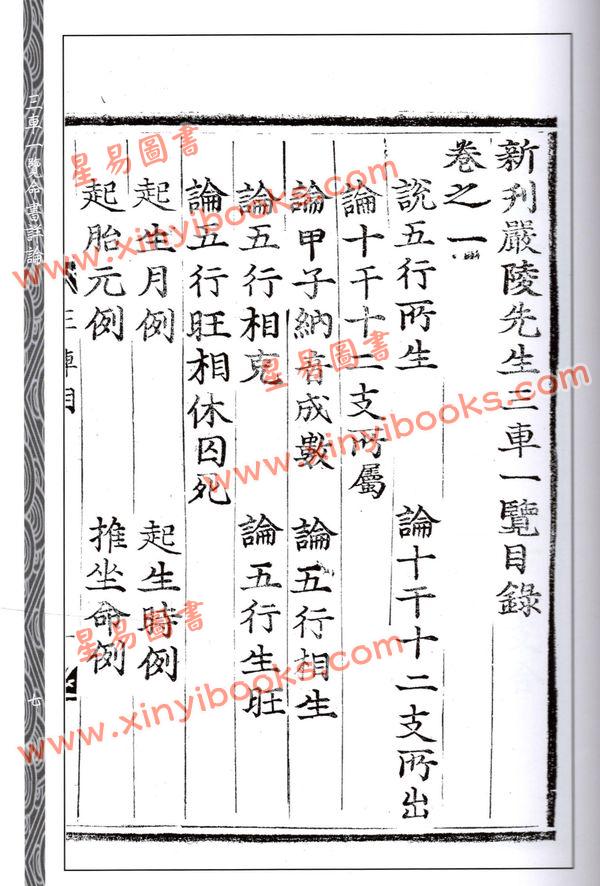 新刊嚴陵先生三車一覽目錄
卷之一
說五行所生
論十干十二支所出
論十干十二支所屬
論甲子納音成數
論五行相生
論五行相克
論五行生旺
論五行旺相休囚死
起生月例
起生時例
起胎元例
推坐命例
三車一覽命書詳論
七
星易圖書
www.xinyibooks.com
星易圖書
www.xinyibooks.com
星易圖書
www.xinyibooks.com